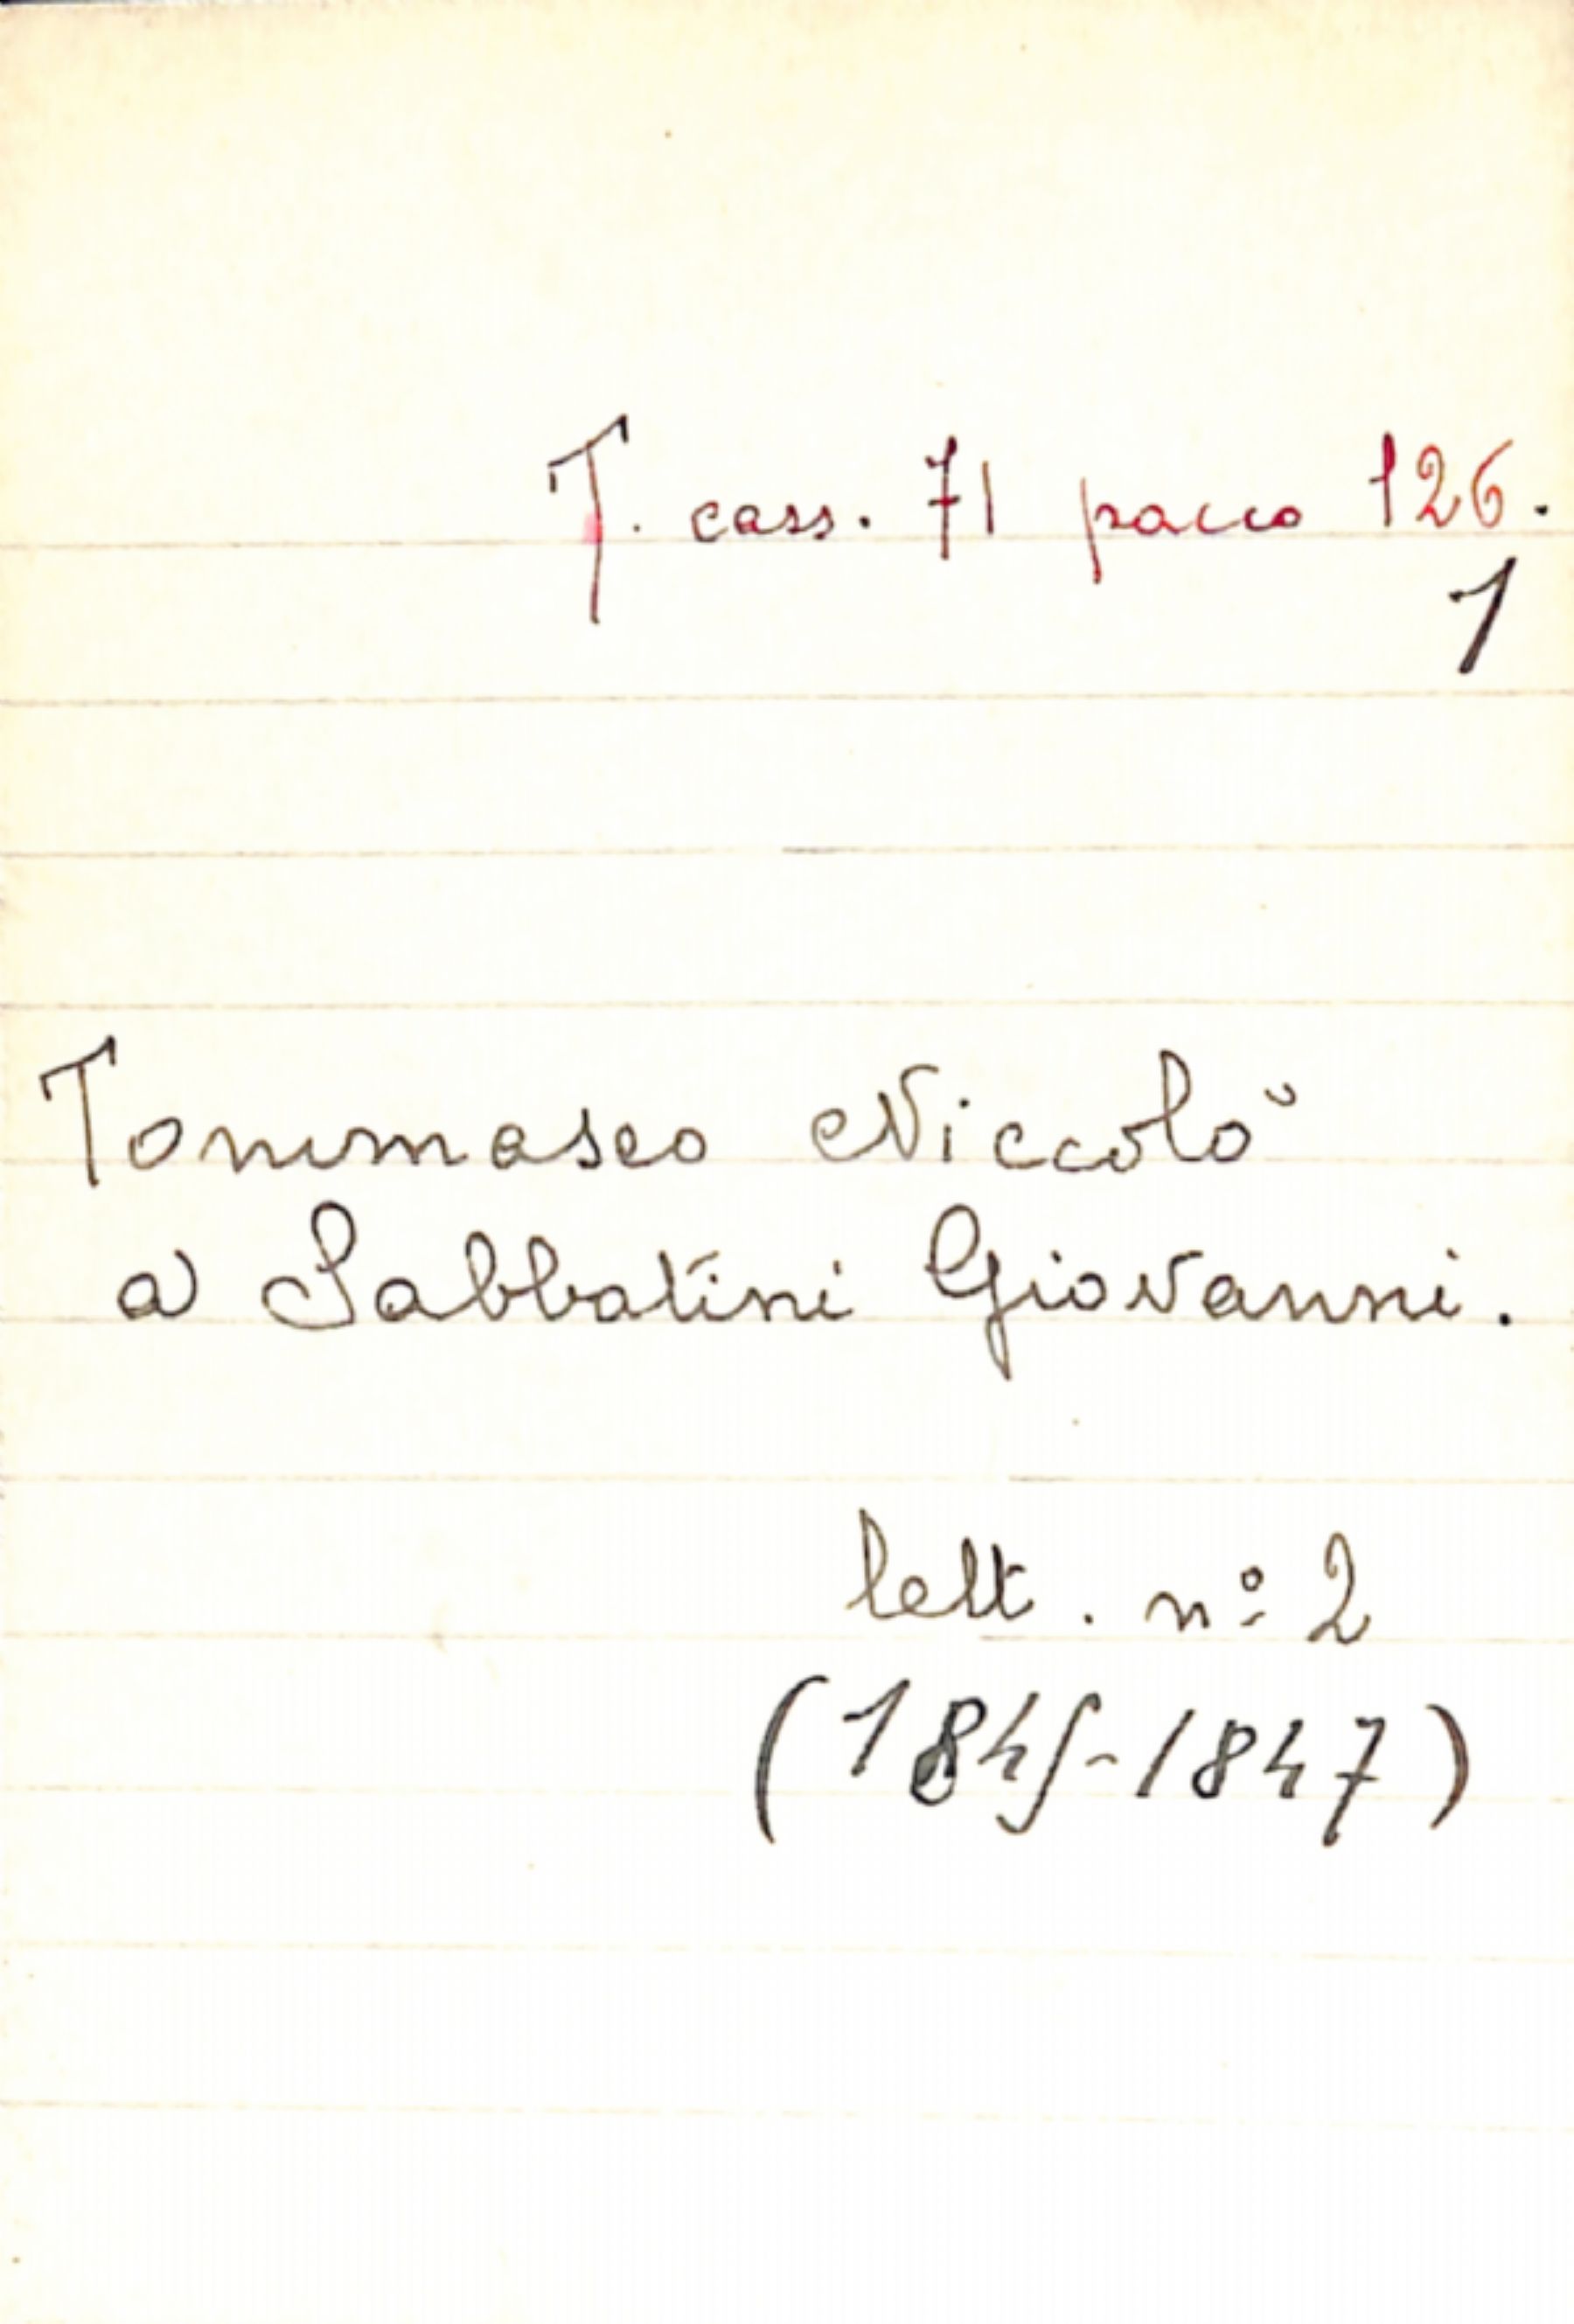 T. cass. 71 pacco 126.
1
Tommaseo Niccolò
a Sabbatini Giovanni.
lett. nº 2
(1845-1847)